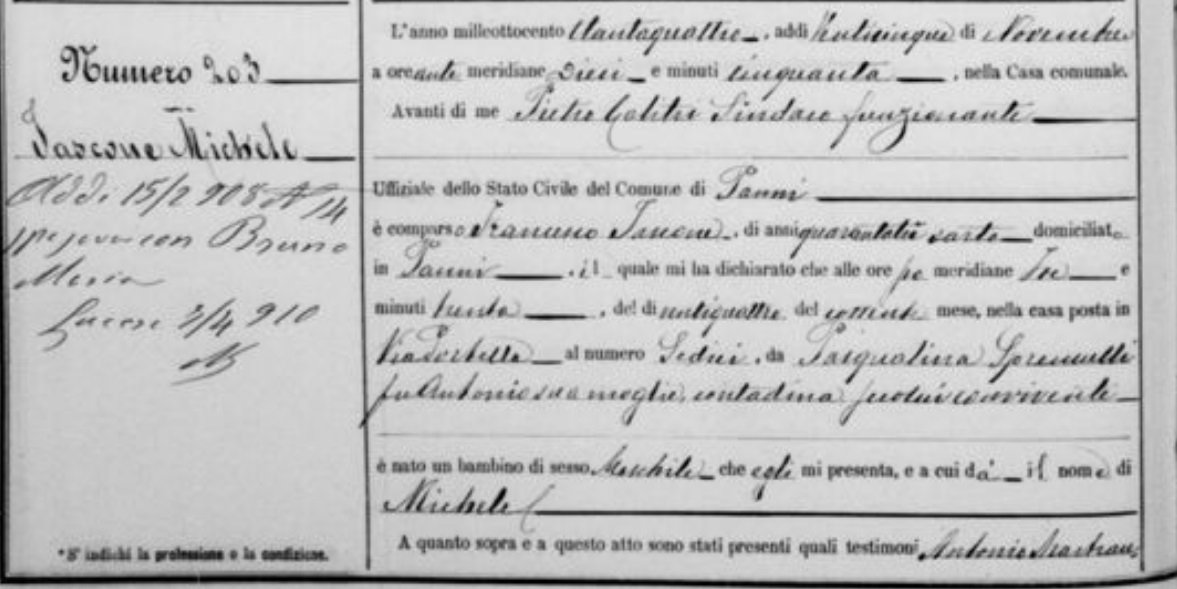 Numero 203
Pascone Michele
Addì 15/2 908 N 14
con Bruno
Maria
3/4 910
*S' indichi la professione o la condizione.
L'anno milleottocento ottantaquattro, addi venticinque di Novembre
a ore ante meridiane Dieci e minuti cinquanta, nella Casa comunale.
Avanti di me Pietro Calitri Sindaco funzionante
Uffiziale dello Stato Civile del Comune di Panni
è comparso Francesco Pascone, di anni quarantatre sarto domiciliato
in Panni, il quale mi ha dichiarato che alle ore po meridiane Tre e
minuti trenta, del dì ventiquattro del corrente mese, nella casa posta in
Via Portella al numero Sedici, da Pasqualina
fu Antonio sua moglie, contadina seco lui convivente
è nato un bambino di sesso Maschile che egli mi presenta, e a cui dà il nome di
Michele
A quanto sopra e a questo atto sono stati presenti quali testimoni Antonio